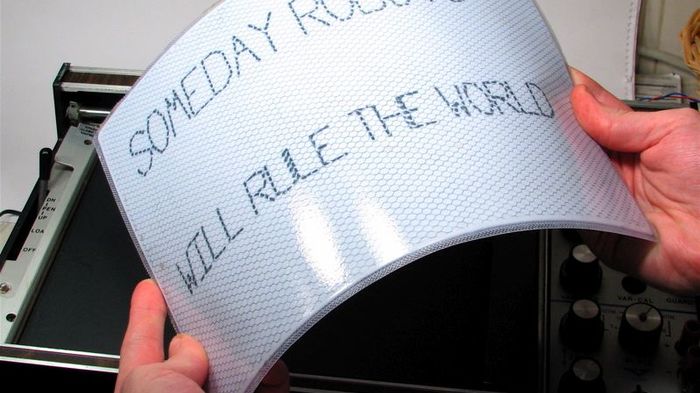 SOMEDAY
WILL RULE THE WORLD
ON
PEN
UP
LOA
OFF
VAR-CAL